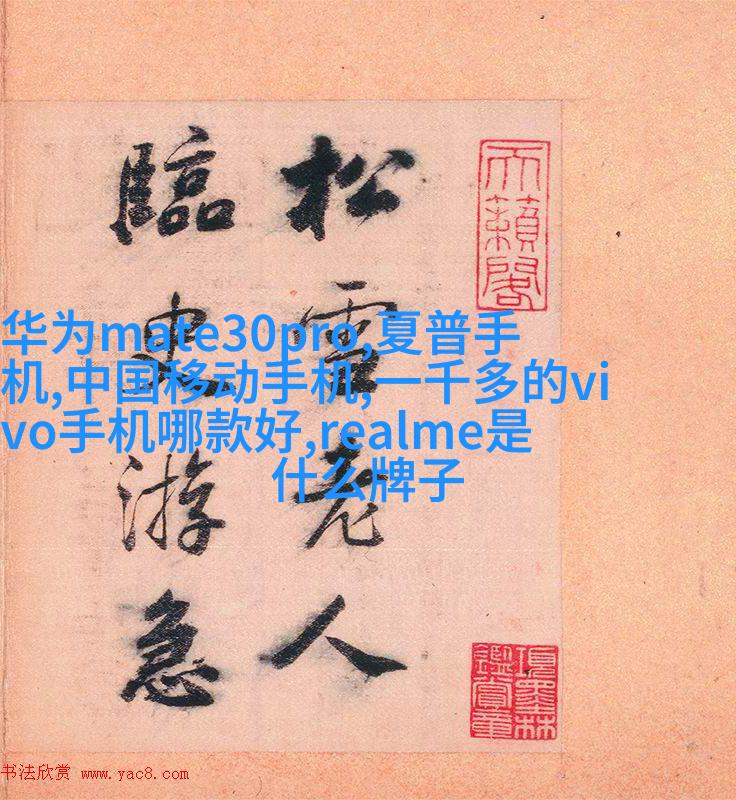 天籟閣
松雪老人
臨史游急
項墨林
鑑賞章
华为mate30pro,夏普手
机,中国移动手机,一千多的vi
vo手机哪款好,realme是
什么牌子
书法欣赏 www.yac8.com